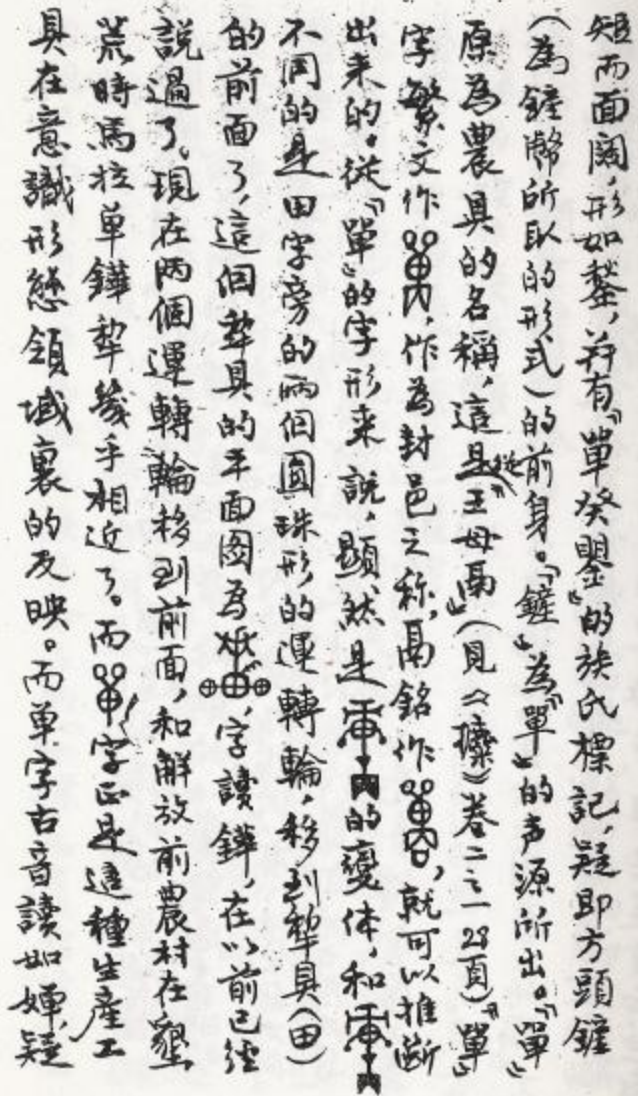 短而面闊，形如鏊，并有“單癸鑋”的族氏標記，疑即方頭鏟
（為鏟幣所取的形式）的前身。“鏟”為“單”的声源所出。“單”
原為農具的名稱，這是從“王母鬲”（見《攈》卷二之一28頁）“單”
字繁文作，作為封邑之称，鬲銘作，就可以推斷
出来的。從“單”的字形来説，顯然是的變体，和
不同的是田字旁的兩個圓珠形的運轉輪，移到犂具（田）
的前面了，這個犂具的平面图為，字讀鏵，在以前已經
說過了。現在两個運轉輪移到前面，和解放前農村在墾
荒時馬拉单鏵犂幾乎相近了。而字正是這種生産工
具在意識形態領域裏的反映。而单字古音讀如嬋，疑